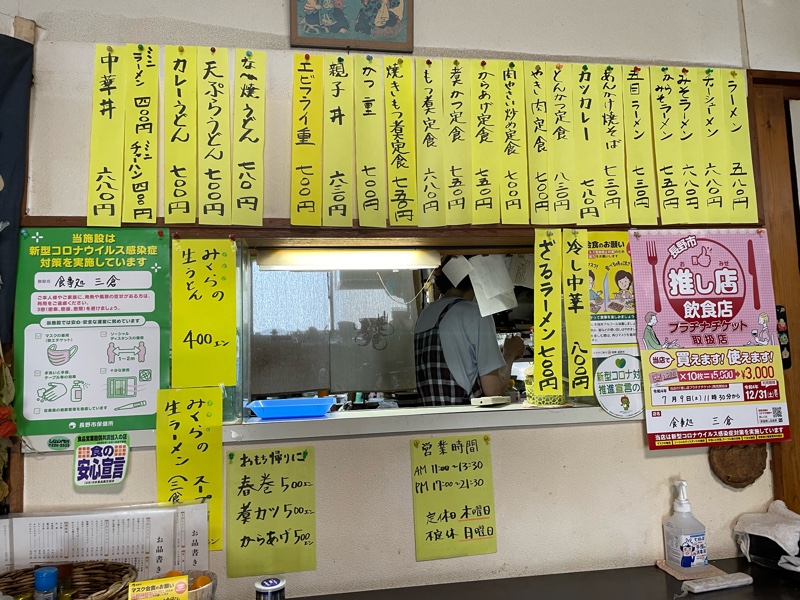 ラーメン 五八〇円
チャーシューメン 六八〇円
みそラーメン 六八〇円
からみそラーメン 七五〇円
五目ラーメン 七三〇円
あんかけ焼そば 七三〇円
カツカレー 七八〇円
とんかつ定食 八三〇円
やき肉定食 七〇〇円
肉やさい炒め定食 七〇〇円
からあげ定食 七五〇円
煮かつ定食 七五〇円
もつ煮定食 六八〇円
焼きもつ煮定食 七五〇円
かつ重 七〇〇円
親子丼 六三〇円
エビフライ重 七〇〇円
なべ焼うどん 七八〇円
天ぷらうどん 七〇〇円
カレーうどん 七〇〇円
ミニラーメン 四〇〇円
ミニチャーハン 四〇〇円
中華丼 六八〇円
冷し中華 八〇〇円
ざるラーメン 七〇〇円
みくらの
生うどん
400エン
みくらの
生ラーメン
スープ
おもち帰りに
春巻 500エン
煮カツ 500エン
からあげ 500エン
営業時間
AM 11:00~13:30
PM 17:00~21:30
定休日 木曜日
不定休 日曜日
当施設は
新型コロナウイルス感染症
対策を実施しています
施設名
食事処 三倉
ソーシャル
ディスタンスの確保
1~2m
長野市保健所
食品営業賠償共済加入の店
食の
安心宣言
長野市
推し店
みせ
飲食店
プラチナチケット
取扱店
当店で買えます!使えます!
×10枚=5,000
¥3,000
7月9日(土)11時30分から
令和4年
12/31
食事処 三倉
当店は新型コロナウイルス感染症対策を実施しています
新型コロナ対策
推進宣言の
お品書き
お品書き
マスク会食のお願い